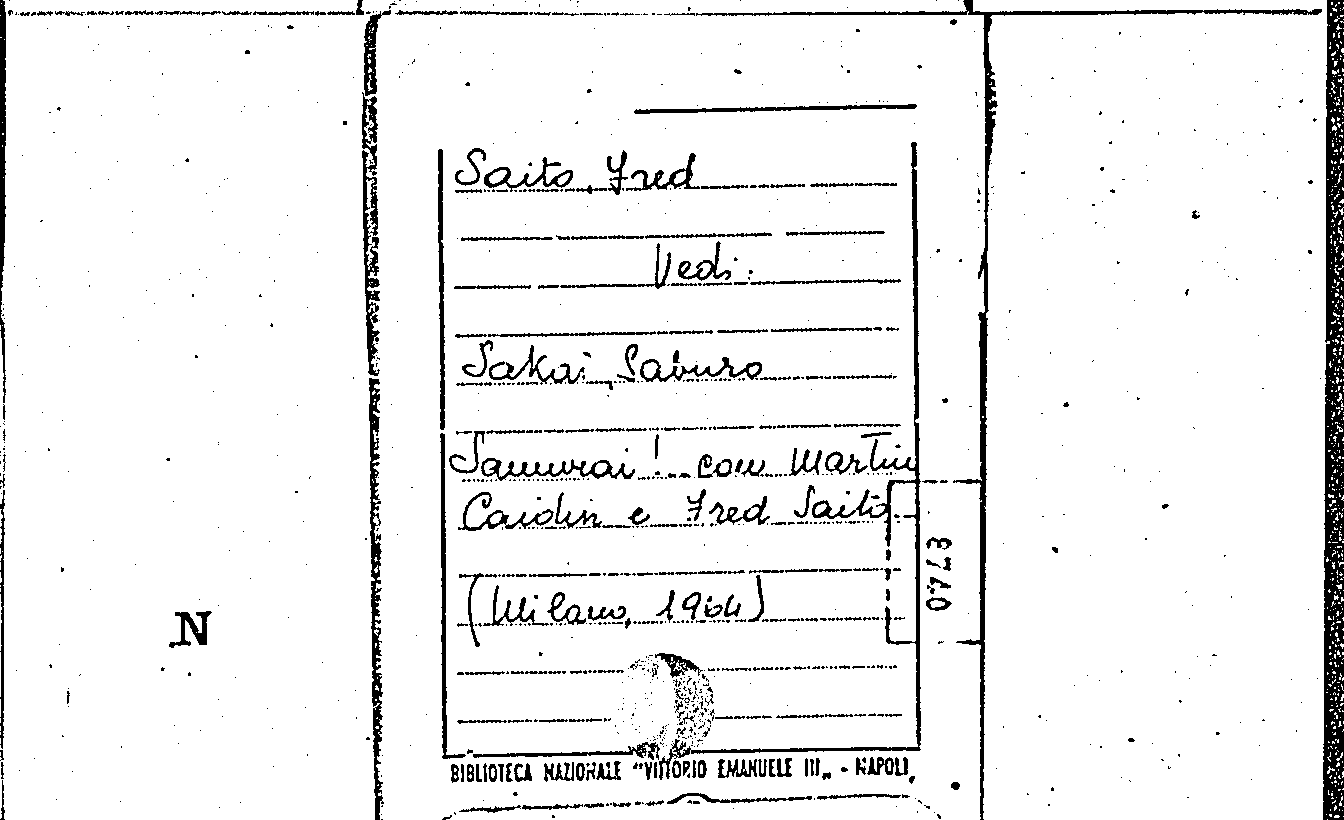 Saito, Fred
Vedi:
Sakai, Saburo
Samurai! con Martin
Caidin e Fred Saito.
(Milano, 1964)
0740
N
BIBLIOTECA NAZIONALE "VITTORIO EMANUELE III" - NAPOLI